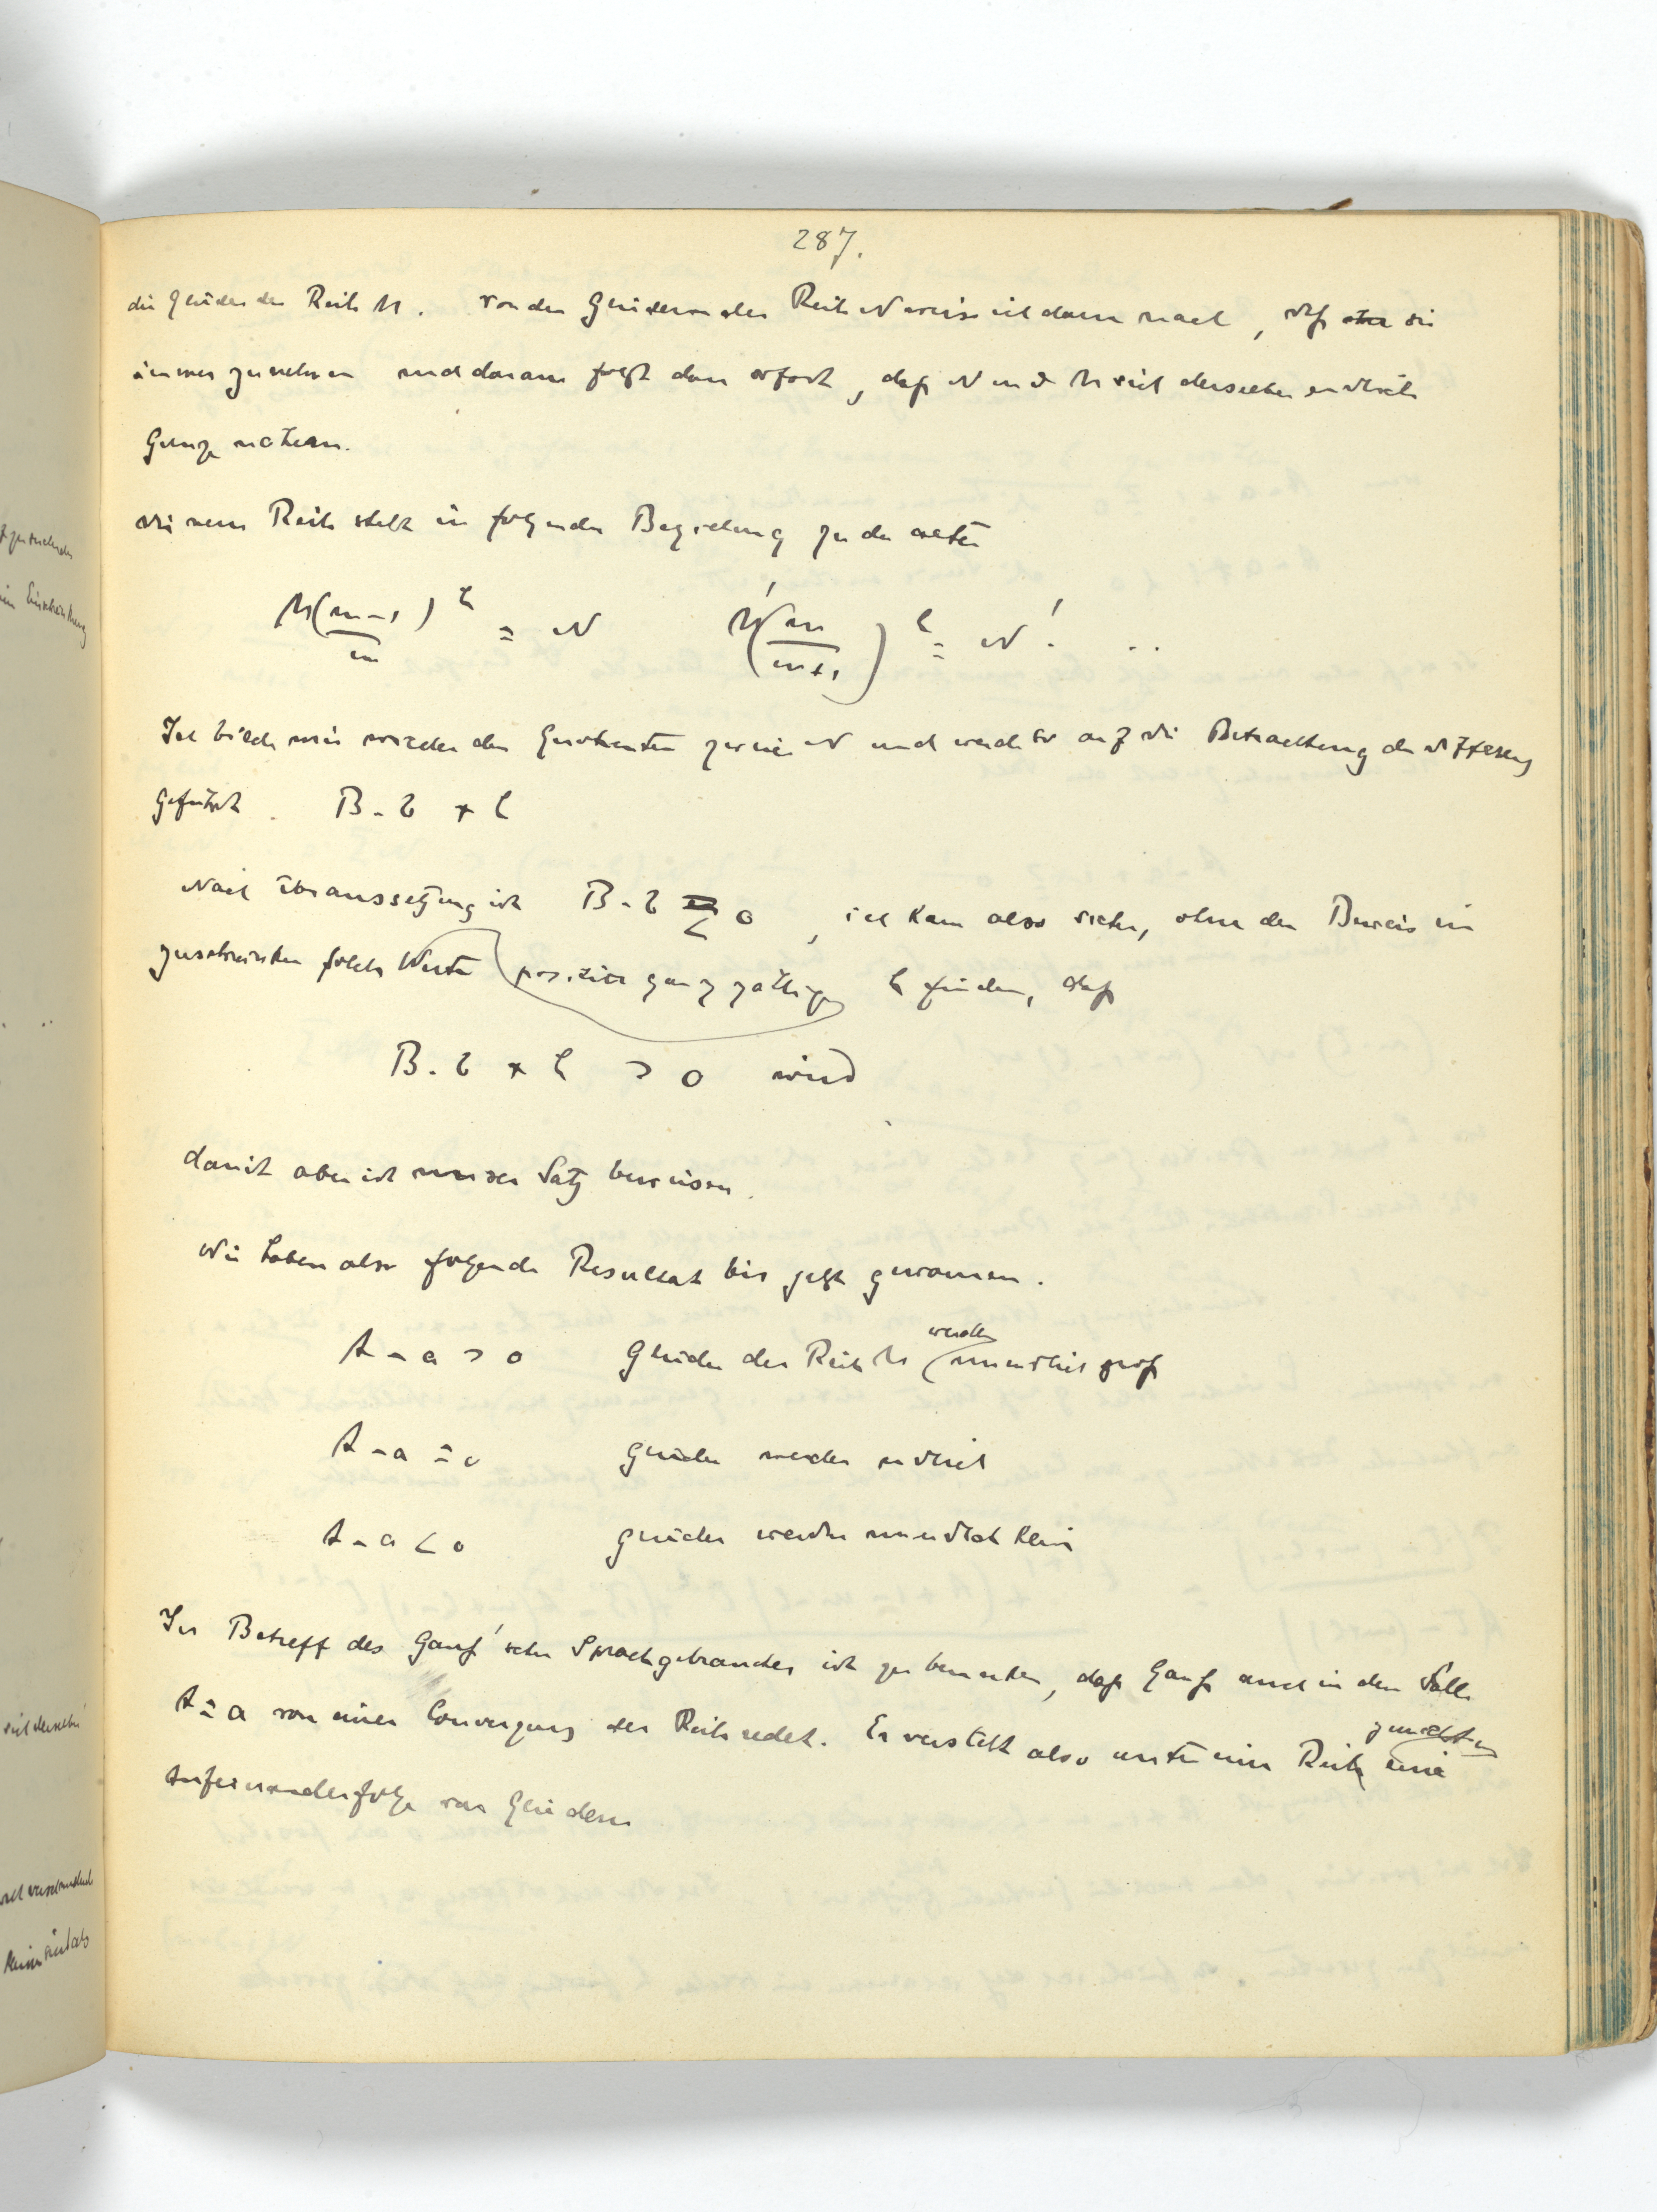 287.
die Glieder der Reihe M. Von den Gliedern der Reihe N weise ich dann nach, daß sie
immer zunehmen und daraus folgt dann sofort, daß N und M sich derselben endlich
Grenze nähern.
Die neue Reihe steht in folgender Beziehung zu der alten
M(m-1 / m)^h = N M'(m / m+1)^h = N' . ..
Ich bilde mir wieder den Quotienten zweier N und werde so auf die Betrachtung der Differenz
geführt. B - b + h
Nach Voraussetzung ist B - b < 0, ich kann also sicher, ohne den Beweis ein
zuschränken solche Werte (positive ganzzahlige) h finden, daß
B - b + h > 0 wird
damit aber ist unser Satz bewiesen.
Wir haben also folgende Resultat bis jetzt gewonnen.
A - a > 0 Glieder der Reihe M werden unendlich groß
A - a = 0 Glieder werden endlich
A - a < 0 Glieder werden unendlich klein
In Betreff des Gauß'schen Sprachgebrauches ist zu bemerken, daß Gauß auch in dem Falle
A = a von einer Convergenz der Reihe redet. Er versteht also unter einer Reihe zunächst eine
Aufeinanderfolge von Gliedern